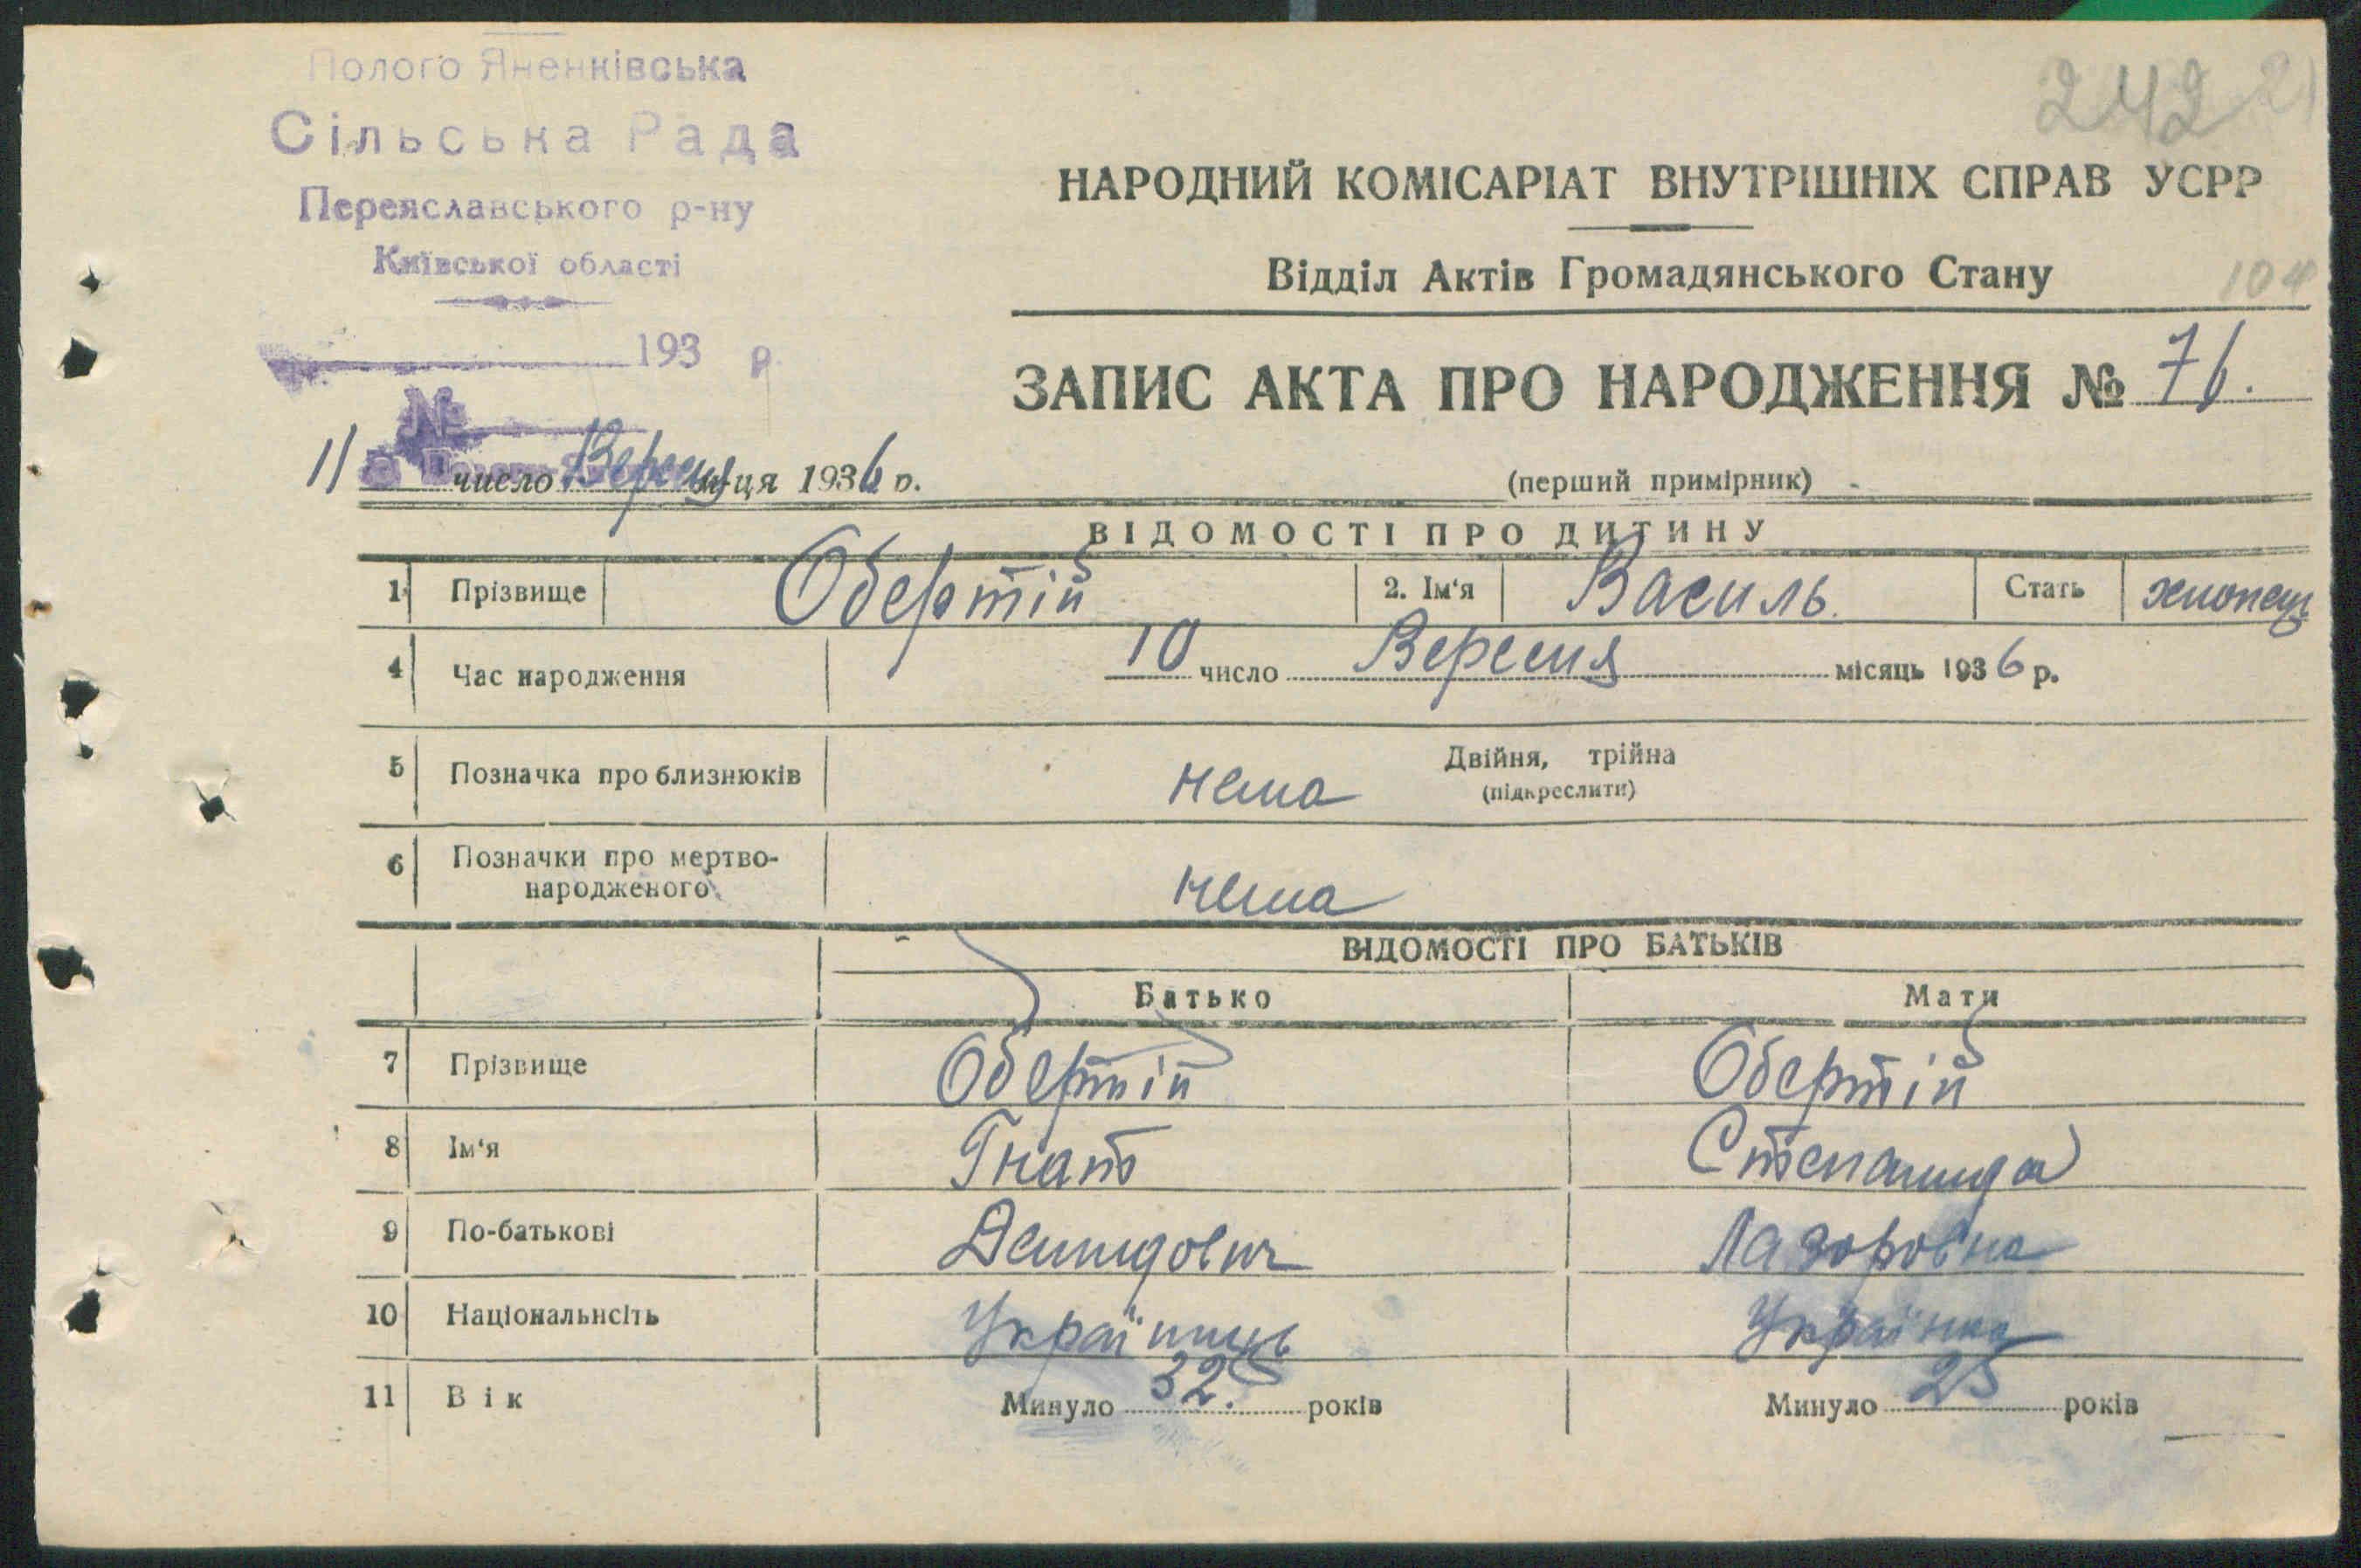 Полого Яненківська
Сільська Рада
Переяславського р-ну
Київської області
193 р.
№
242 21
НАРОДНИЙ КОМІСАРІАТ ВНУТРІШНІХ СПРАВ УСРР
Відділ Актів Громадянського Стану
104
ЗАПИС АКТА ПРО НАРОДЖЕННЯ № 76.
11 число Вересня м-ця 1936 р.
(перший примірник)
ВІДОМОСТІ ПРО ДИТИНУ
1 Прізвище Обертій 2. Ім'я Василь. Стать хлопець
4 Час народження 10 число Вересня місяць 1936 р.
5 Позначка про близнюків нема Двійня, трійна
(підкреслити)
6 Позначки про мертво-
народженого нема
ВІДОМОСТІ ПРО БАТЬКІВ
Батько Мати
7 Прізвище Обертій Обертій
8 Ім'я Гнат Степанида
9 По-батькові Демидович Лазоровна
10 Національнсіть Українець Українка
11 Вік Минуло 32. років Минуло 25 років